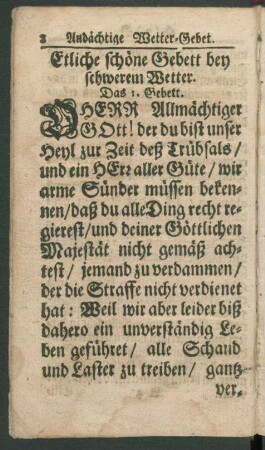 2 Andächtige Wetter-Gebet.
Etliche schöne Gebett bey
schwerem Wetter.
Das 1. Gebett.
O HERR Allmächtiger
GOtt! der du bist unser
Heyl zur Zeit deß Trübsals/
und ein HErz aller Güte/ wir
arme Sünder müssen beken-
nen/ daß du alle Ding recht re-
gierest/ und deiner Göttlichen
Majestät nicht gemäß ach-
test/ jemand zu verdammen/
der die Straffe nicht verdienet
hat: Weil wir aber leider biß
dahero ein unverständig Le-
ben geführet/ alle Schand
und Laster zu treiben/ gantz
ver-